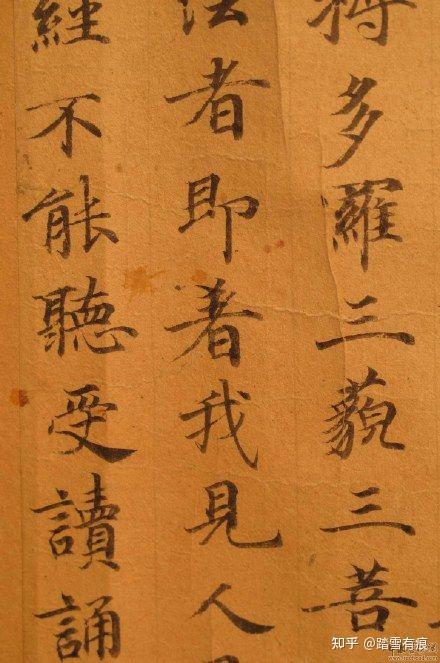 多羅三藐三菩
法者即著我見人
經不能聽受讀誦
知乎 @踏雪有痕